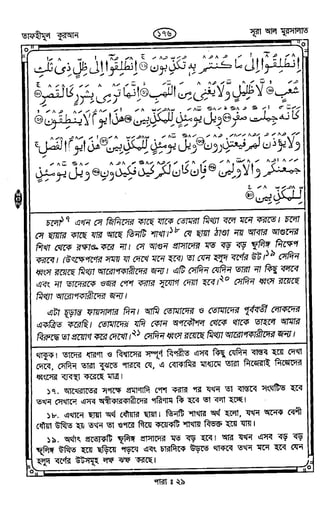 তাফহীমুল কুরআন
১৭৬
সূরা আল মুরসালাত
اِنْطَلِقُوْٓا اِلٰى مَا كُنْتُمْ بِهٖ تُكَذِّبُوْنَ ﴿٢٩﴾ اِنْطَلِقُوْٓا اِلٰى ظِلٍّ ذِيْ ثَلٰثِ
شُعَبٍ ﴿٣٠﴾ لَّا ظَلِيْلٍ وَّلَا يُغْنِيْ مِنَ اللَّهَبِ ﴿٣١﴾ اِنَّهَا تَرْمِيْ بِشَرَرٍ كَالْقَصْرِ ﴿٣٢﴾
كَاَنَّهٗ جِمٰلَتٌ صُفْرٌ ﴿٣٣﴾ وَيْلٌ يَّوْمَئِذٍ لِّلْمُكَذِّبِيْنَ ﴿٣٤﴾ هٰذَا يَوْمُ لَا يَنْطِقُوْنَ ﴿٣٥﴾
وَلَا يُؤْذَنُ لَهُمْ فَيَعْتَذِرُوْنَ ﴿٣٦﴾ وَيْلٌ يَّوْمَئِذٍ لِّلْمُكَذِّبِيْنَ ﴿٣٧﴾ هٰذَا يَوْمُ الْفَصْلِ ۚ
جَمَعْنٰكُمْ وَالْاَوَّلِيْنَ ﴿٣٨﴾ فَاِنْ كَانَ لَكُمْ كَيْدٌ فَكِيْدُوْنِ ﴿٣٩﴾ وَيْلٌ يَّوْمَئِذٍ
لِّلْمُكَذِّبِيْنَ ﴿٤٠﴾
চলো১৭ এখন সে জিনিসের কাছে যাকে তোমরা মিথ্যা বলে মনে করতে। চলো
সে ছায়ার কাছে যার আছে তিনটি শাখা।১৮ যে ছায়া ঠাণ্ডা নয় আবার আগুনের
শিখা থেকে রক্ষাও করে না। সে আগুন প্রাসাদের মত বড় বড় স্ফুলিঙ্গ নিক্ষেপ
করবে। (উৎক্ষেপণের সময় যা দেখে মনে হবে) তা যেন হলুদ বর্ণের উট।১৯ সেদিন
ধ্বংস রয়েছে মিথ্যা আরোপকারীদের জন্য। এটি সেদিন যেদিন তারা না কিছু বলবে
এবং না তাদেরকে ওজর পেশ করার সুযোগ দেয়া হবে।২০ সেদিন ধ্বংস রয়েছে
মিথ্যা আরোপকারীদের জন্য।
এটা চূড়ান্ত ফায়সালার দিন। আমি তোমাদের ও তোমাদের পূর্ববর্তী লোকদের
একত্রিত করেছি। তোমাদের যদি কোন অপকৌশল থেকে থাকে তাহলে আমার
বিরুদ্ধে তা প্রয়োগ করে দেখো।২১ সেদিন ধ্বংস রয়েছে মিথ্যা আরোপকারীদের জন্য।
থাকুক। তাদের ধারণা ও বিশ্বাসের সম্পূর্ণ বিপরীত এসব কিছু যেদিন বাস্তব হয়ে দেখা
দেবে, সেদিন তারা বুঝতে পারবে যে, এ বোকামির মাধ্যমে তারা নিজেরাই নিজেদের
ধ্বংসের ব্যবস্থা করেছে মাত্র।
১৭. আখেরাতের সপক্ষে প্রমাণাদি পেশ করার পর যখন তা বাস্তবে সংঘটিত হবে
তখন সেখানে এসব অস্বীকারকারীদের পরিণাম কি হবে তা বলা হচ্ছে।
১৮. এখানে ছায়া অর্থ ধোঁয়ার ছায়া। তিনটি শাখার অর্থ হলো, যখন অনেক বেশী
ধোঁয়া উত্থিত হয় তখন তা ওপরে গিয়ে কয়েকটি শাখায় বিভক্ত হয়ে যায়।
১৯. অর্থাৎ প্রত্যেকটি স্ফুলিঙ্গ প্রাসাদের মত বড় হবে। আর যখন এসব বড় বড়
স্ফুলিঙ্গ উত্থিত হয়ে ছড়িয়ে পড়বে এবং চারদিকে উড়তে থাকবে তখন মনে হবে যেন
হলুদ বর্ণের উটসমূহ লম্ফ ঝম্ফ করছে।
পারা : ২৯